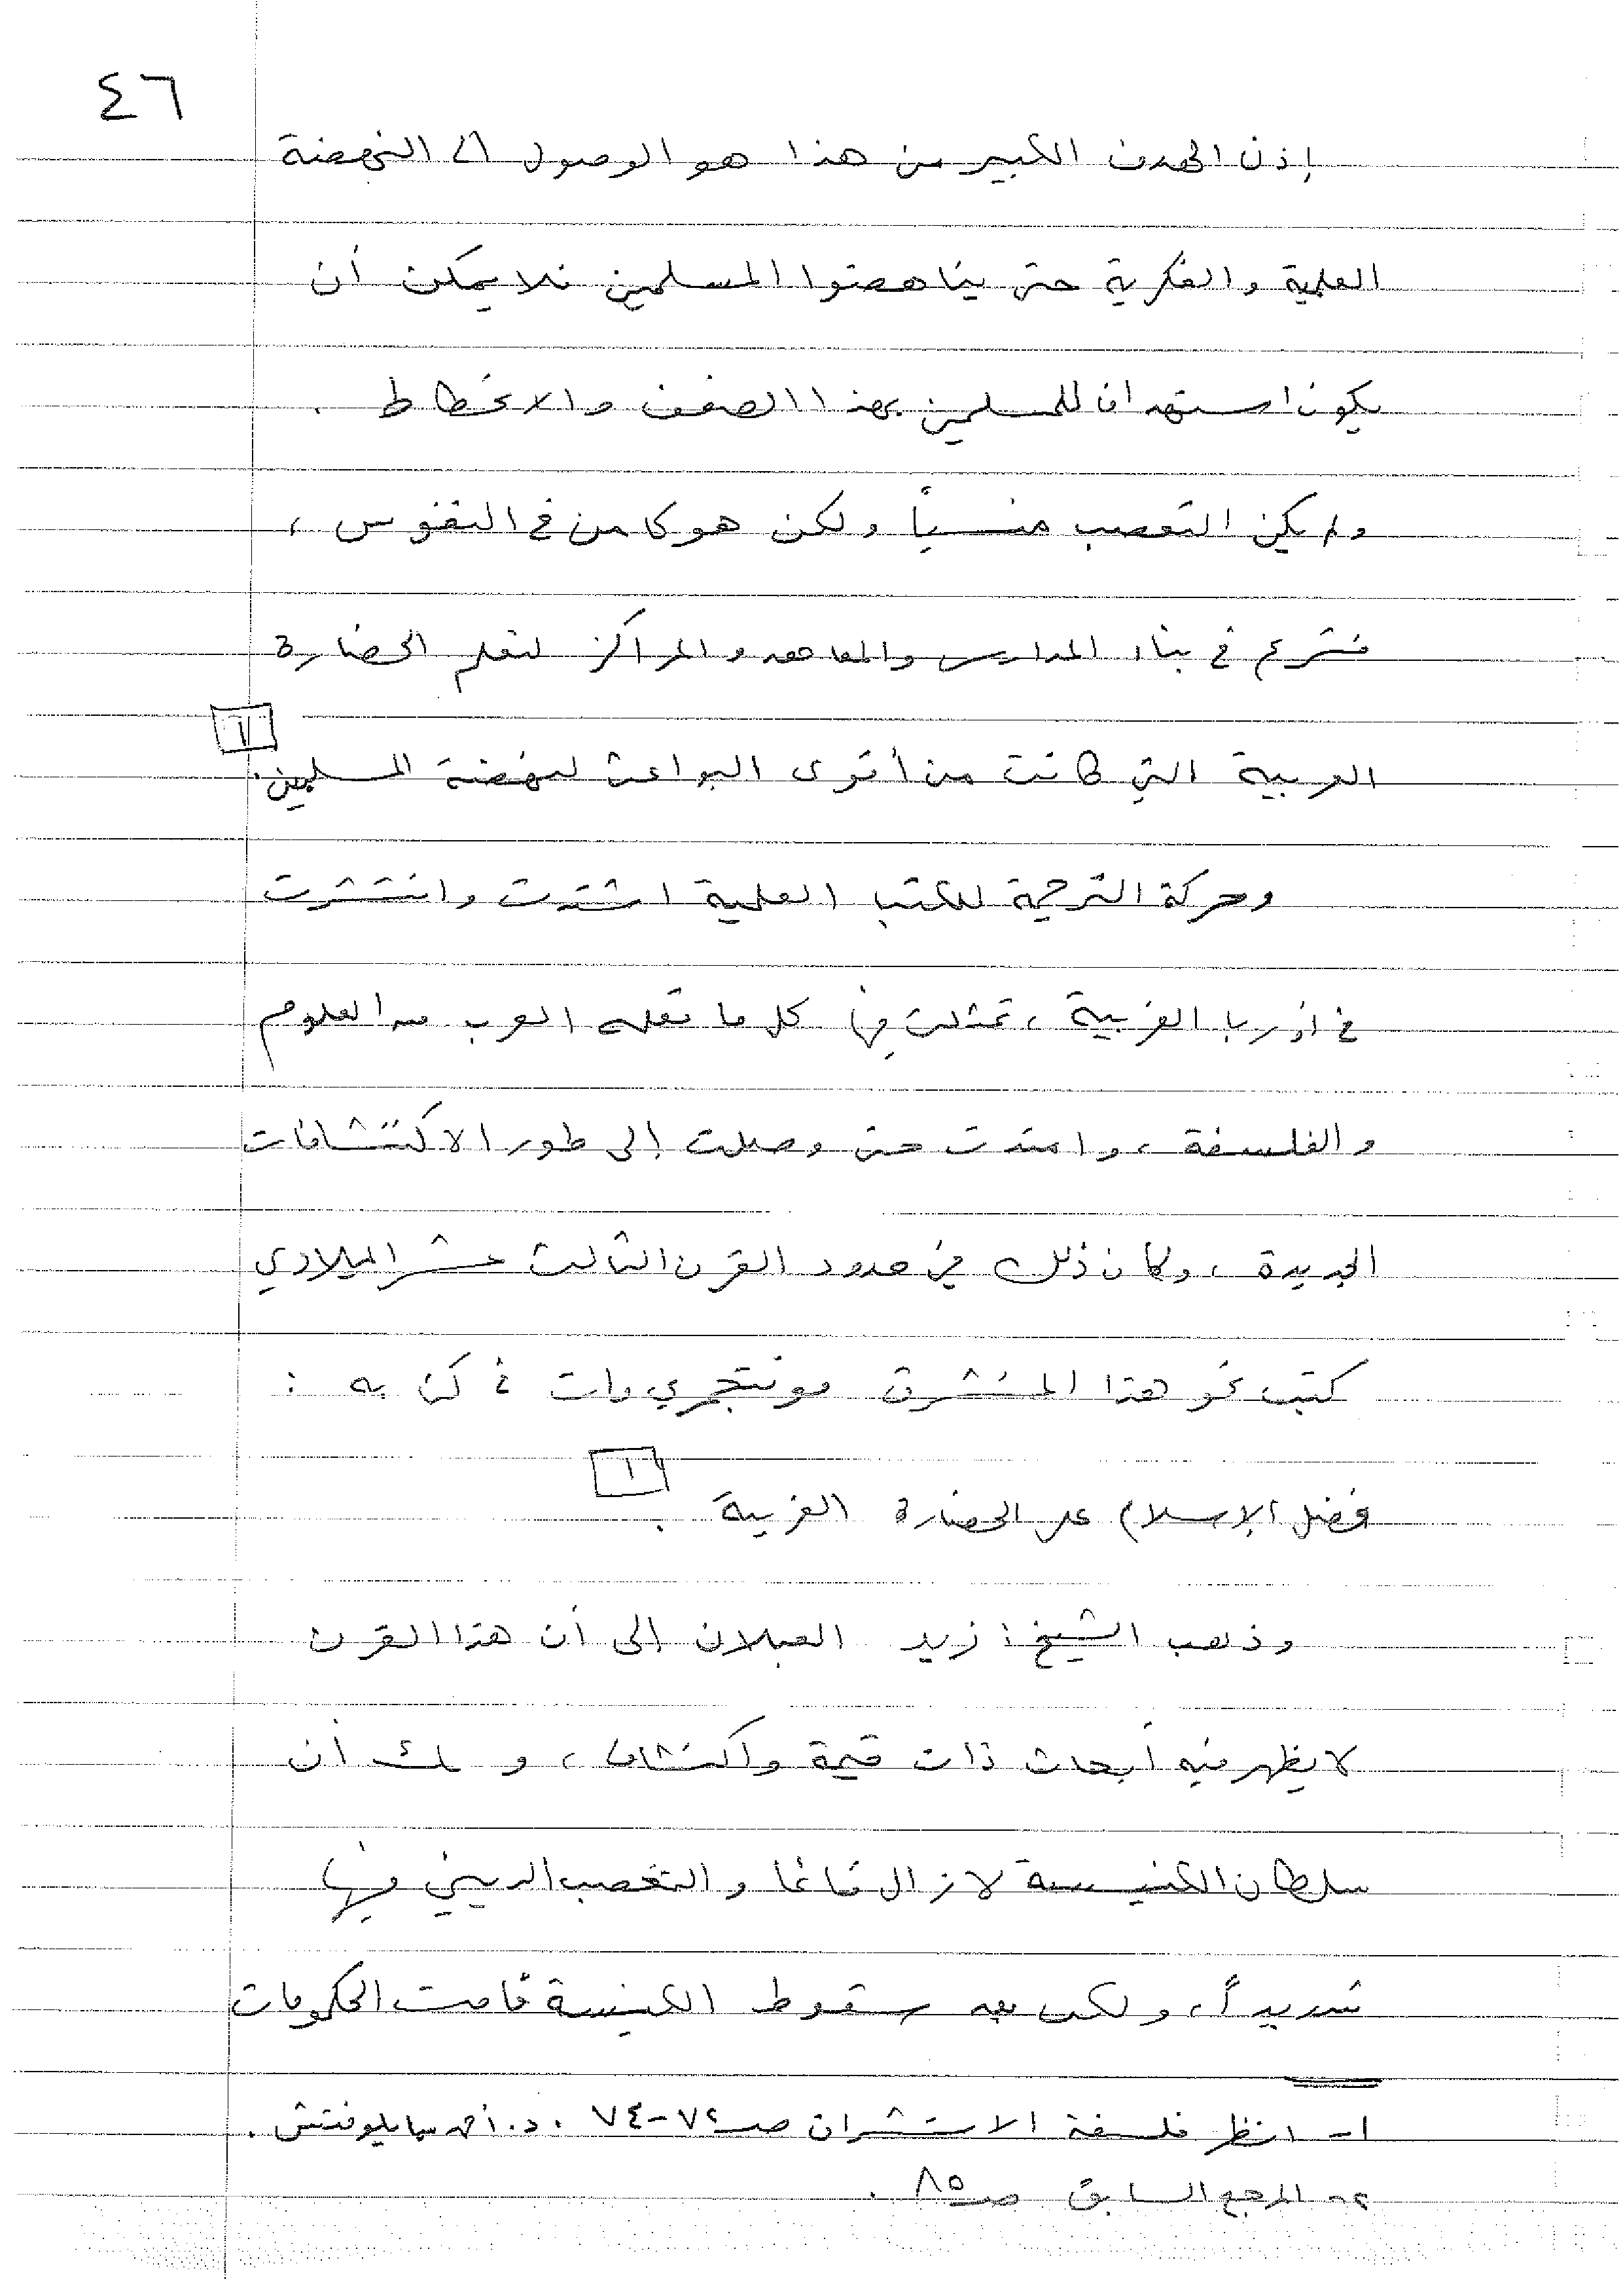 ٤٦
إذن الهدف الكبير من هذا هو الوصول الى النهضة
العلمية والفكرية حتى يناهضوا المسلمين فلا يمكن أن
يكون استهداف للمسلمين بهذا الضعف والانحطاط .
ولم يكن التعصب منسياً ولكن هو كامن في النفوس ،
فشرع في بناء المدارس والمعاهد والمراكز لتعلم الحضارة
العربية التي كانت من أقوى البواعث لنهضة المسلمين. [١]
وحركة الترجمة للكتب العلمية اشتدت وانتشرت
في أوربا الغربية ، تمثلت في كل ما نقله العرب من العلوم
والفلسفة ، وامتدت حتى وصلت إلى طور الاكتشافات
الجديدة ، وكان ذلك في حدود القرن الثالث عشر الميلادي
كتب نحو هذا المستشرق مونتجمري وات في كتابه :
فضل الإسلام على الحضارة الغربية . [١]
وذهب الشيخ : زيد العبلان إلى أن هذا القرن
لا يظهر فيه أبحاث ذات قيمة واكتشاف ، و أن
سلطان الكنيسة لازال قائما والتعصب الديني فيها
شديداً ، ولكن بعد سقوط الكنيسة قامت الحكومات
١- انظر فلسفة الاستشراق صـ ٧٢-٧٤ . د. أحمد سمايلوفتش .
٢- المرجع السابق صـ ٨٥ .